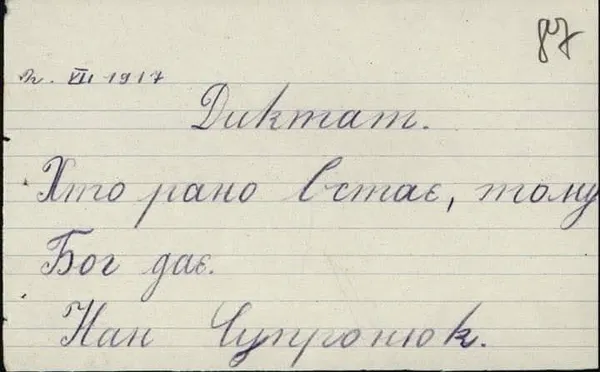 87
VII 1917
Диктат.
Хто рано встає, тому
Бог дає.
Иан Чупронюк.